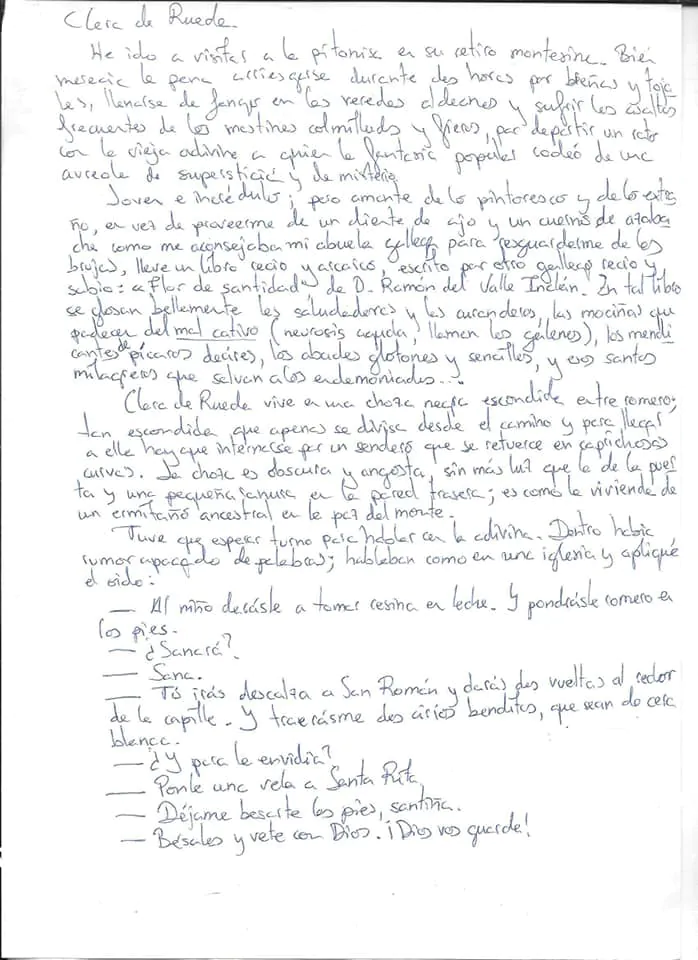 Clara de Rueda.
He ido a visitar a la pitonisa en su retiro montesino. Bien
merecía la pena arriesgarse durante dos horas por breñas y toja
les, llenarse de fango en las veredas aldeanas y sufrir los asaltos
frecuentes de los mastines colmilludos y fieros, por departir un rato
con la vieja adivina a quien la fantasía popular rodeó de una
aureola de superstición y de misterio.
Joven e incrédulo; pero amante de lo pintoresco y de lo extra
ño, en vez de proveerme de un diente de ajo y un cuerno de azaba
che como me aconsejaba mi abuela gallega para resguardarme de las
brujas, lleve un libro recio y arcaico, escrito por otro gallego recio y
sabio: "Flor de santidad" de D. Ramón del Valle Inclán. En tal libro
se glosan bellamente las saludadoras y las curanderas, las mociñas que
padecen del mal cativo (neurosis aguda, llaman los galenos), los mendi
cantes de pícaros decires, los abades glotones y sencillos, y esos santos
milagreros que salvan a los endemoniados...
Clara de Rueda vive en una choza negra escondida entre romero;
tan escondida que apenas se divisa desde el camino y para llegar
a ella hay que internarse por un sendero que se retuerce en caprichosas
curvas. La choza es obscura y angosta, sin más luz que la de la puer
ta y una pequeña ranura en la pared trasera; es como la vivienda de
un ermitaño ancestral en la paz del monte.
Tuve que esperar turno para hablar con la adivina. Dentro había
rumor apagado de palabras; hablaban como en una iglesia y apliqué
el oído:
— Al niño darásle a tomar resina en leche. Y pondrásle romero en
los pies.
— ¿Sanará?
— Sana.
— Tú irás descalza a San Román y darás dos vueltas al redor
de la capilla. Y traerásme dos cirios benditos, que sean de cera
blanca.
— ¿Y para la envidia?
— Ponle una vela a Santa Rita.
— Déjame besarte los pies, santiña.
— Bésalos y vete con Dios. ¡Dios vos guarde!